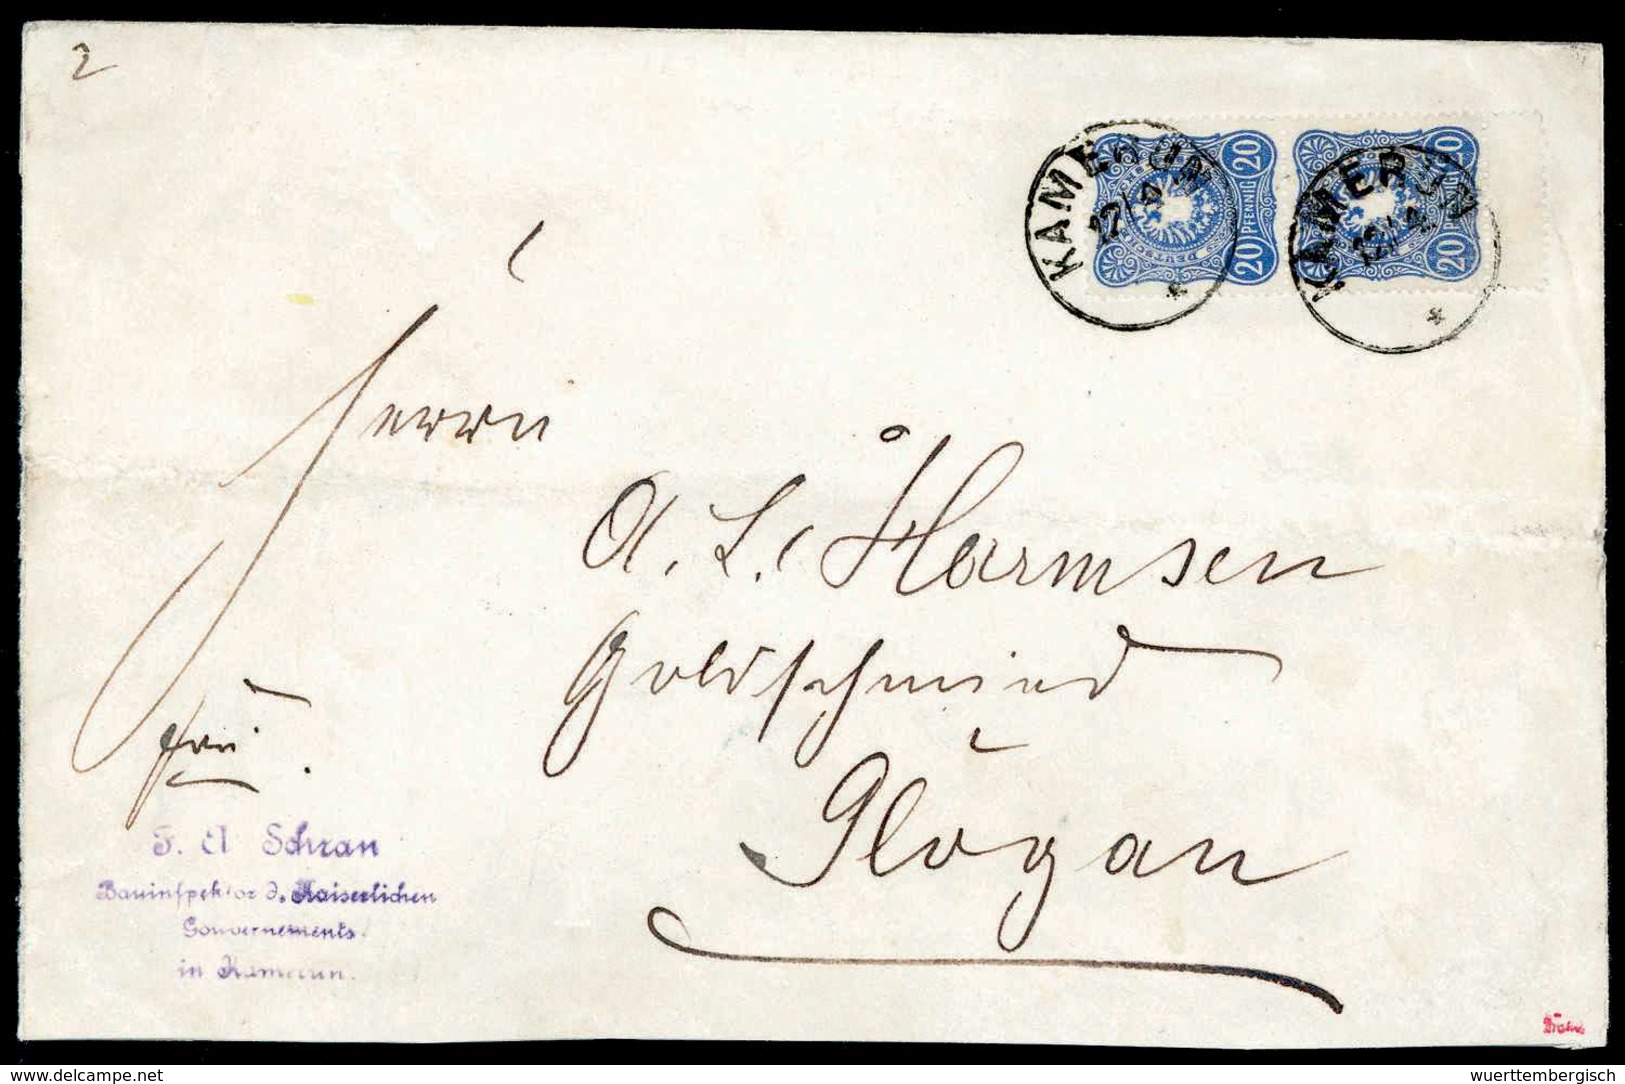 2
KAMERUN
12/4
*
20
PFENNIG
20
KAMERUN
12/4
*
20
PFENNIG
20
Herrn
A. L. Harmsen
Goldschmied
Glogau
frei.
F. A Schran
Bauinspektor d. Kaiserlichen
Gouvernements.
in Kamerun.
delcampe.net
wuerttembergisch